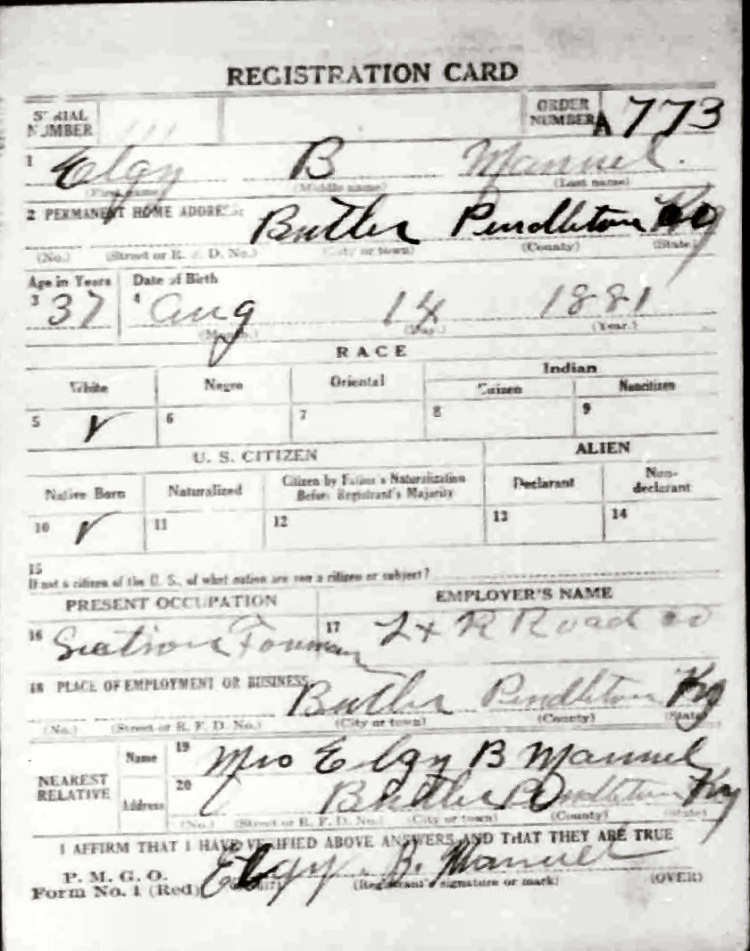 REGISTRATION CARD
SERIAL NUMBER ORDER NUMBER A 773
1 Elgy B Manuel.
(First name) (Middle name) (Last name)
2 PERMANENT HOME ADDRESS: Butler Pendleton Ky
(No.) (Street or R. F. D. No.) (City or town) (County) (State)
Age in Years Date of Birth
3 37 4 Aug 14 1881
(Month.) (Day.) (Year.)
RACE
White Negro Oriental Indian
Citizen Noncitizen
5 ✓ 6 7 8 9
U. S. CITIZEN ALIEN
Native Born Naturalized Citizen by Father's Naturalization Before Registrant's Majority Declarant Non-declarant
10 ✓ 11 12 13 14
15
If not a citizen of the U. S., of what nation are you a citizen or subject?
PRESENT OCCUPATION EMPLOYER'S NAME
16 Section Forman 17 L + R Road
18 PLACE OF EMPLOYMENT OR BUSINESS: Butler Pendleton Ky
(No.) (Street or R. F. D. No.) (City or town) (County) (State)
NEAREST RELATIVE Name 19 Mrs Elgy B Manuel
Address 20 Butler Pendleton Ky
(No.) (Street or R. F. D. No.) (City or town) (County) (State)
I AFFIRM THAT I HAVE VERIFIED ABOVE ANSWERS AND THAT THEY ARE TRUE
P. M. G. O.
Form No. 1 (Red) Elgy. B. Manuel
(Registrant's signature or mark) (OVER)